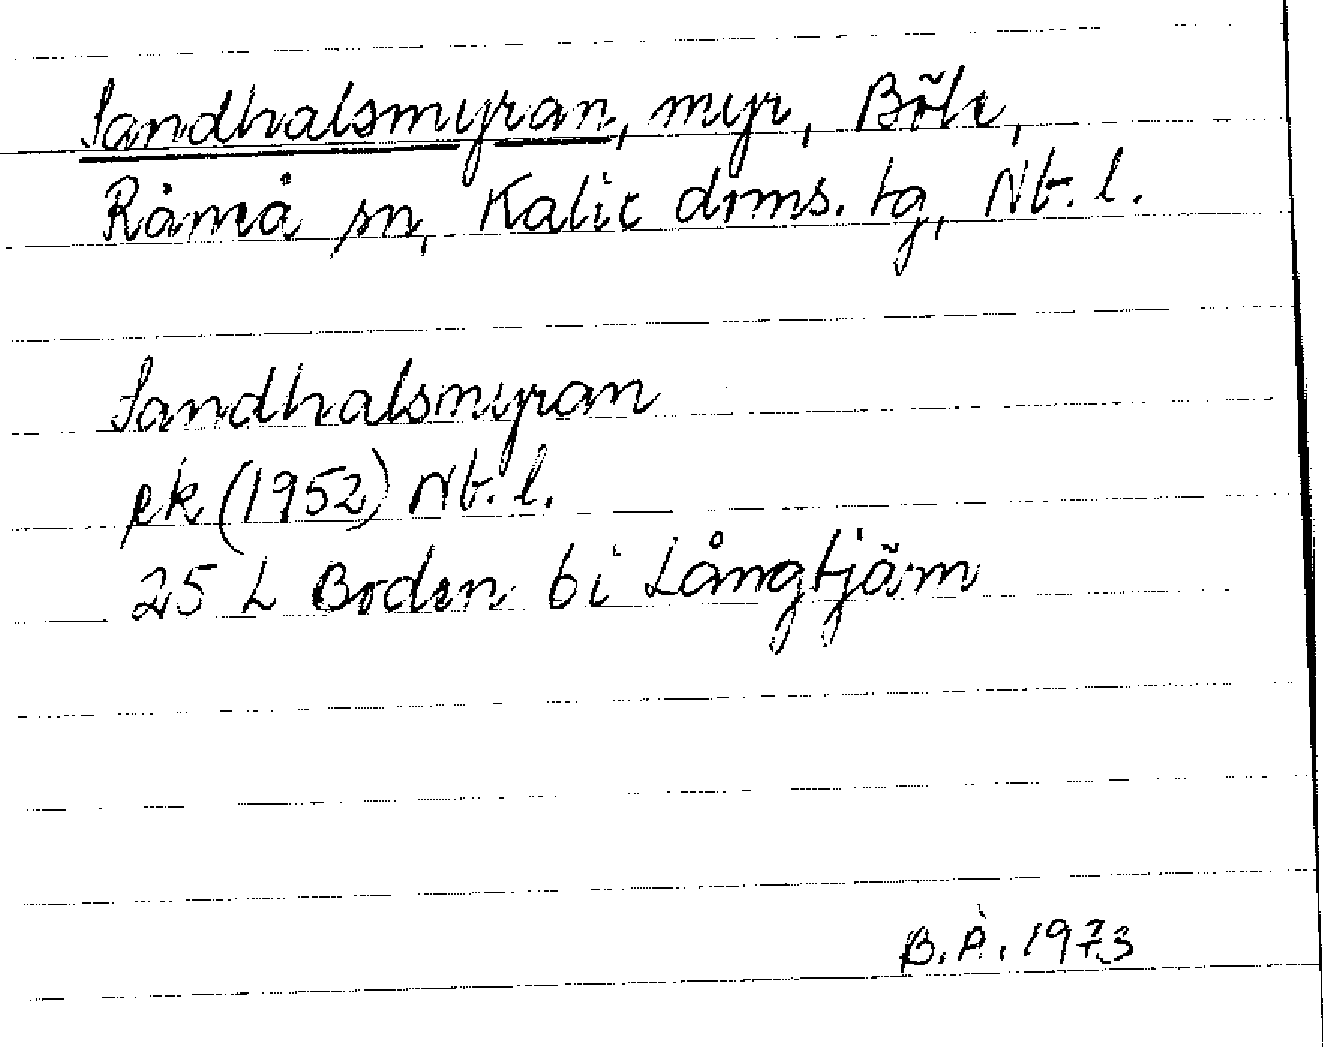 Sandhalsmyran, myr, Böle,
Råneå sn, Kalix dms. tg, Nb. l.
Sandhalsmyran
ek (1952) Nb. l.
25 L Boden 6 i Långtjärn
B. Å. 1973